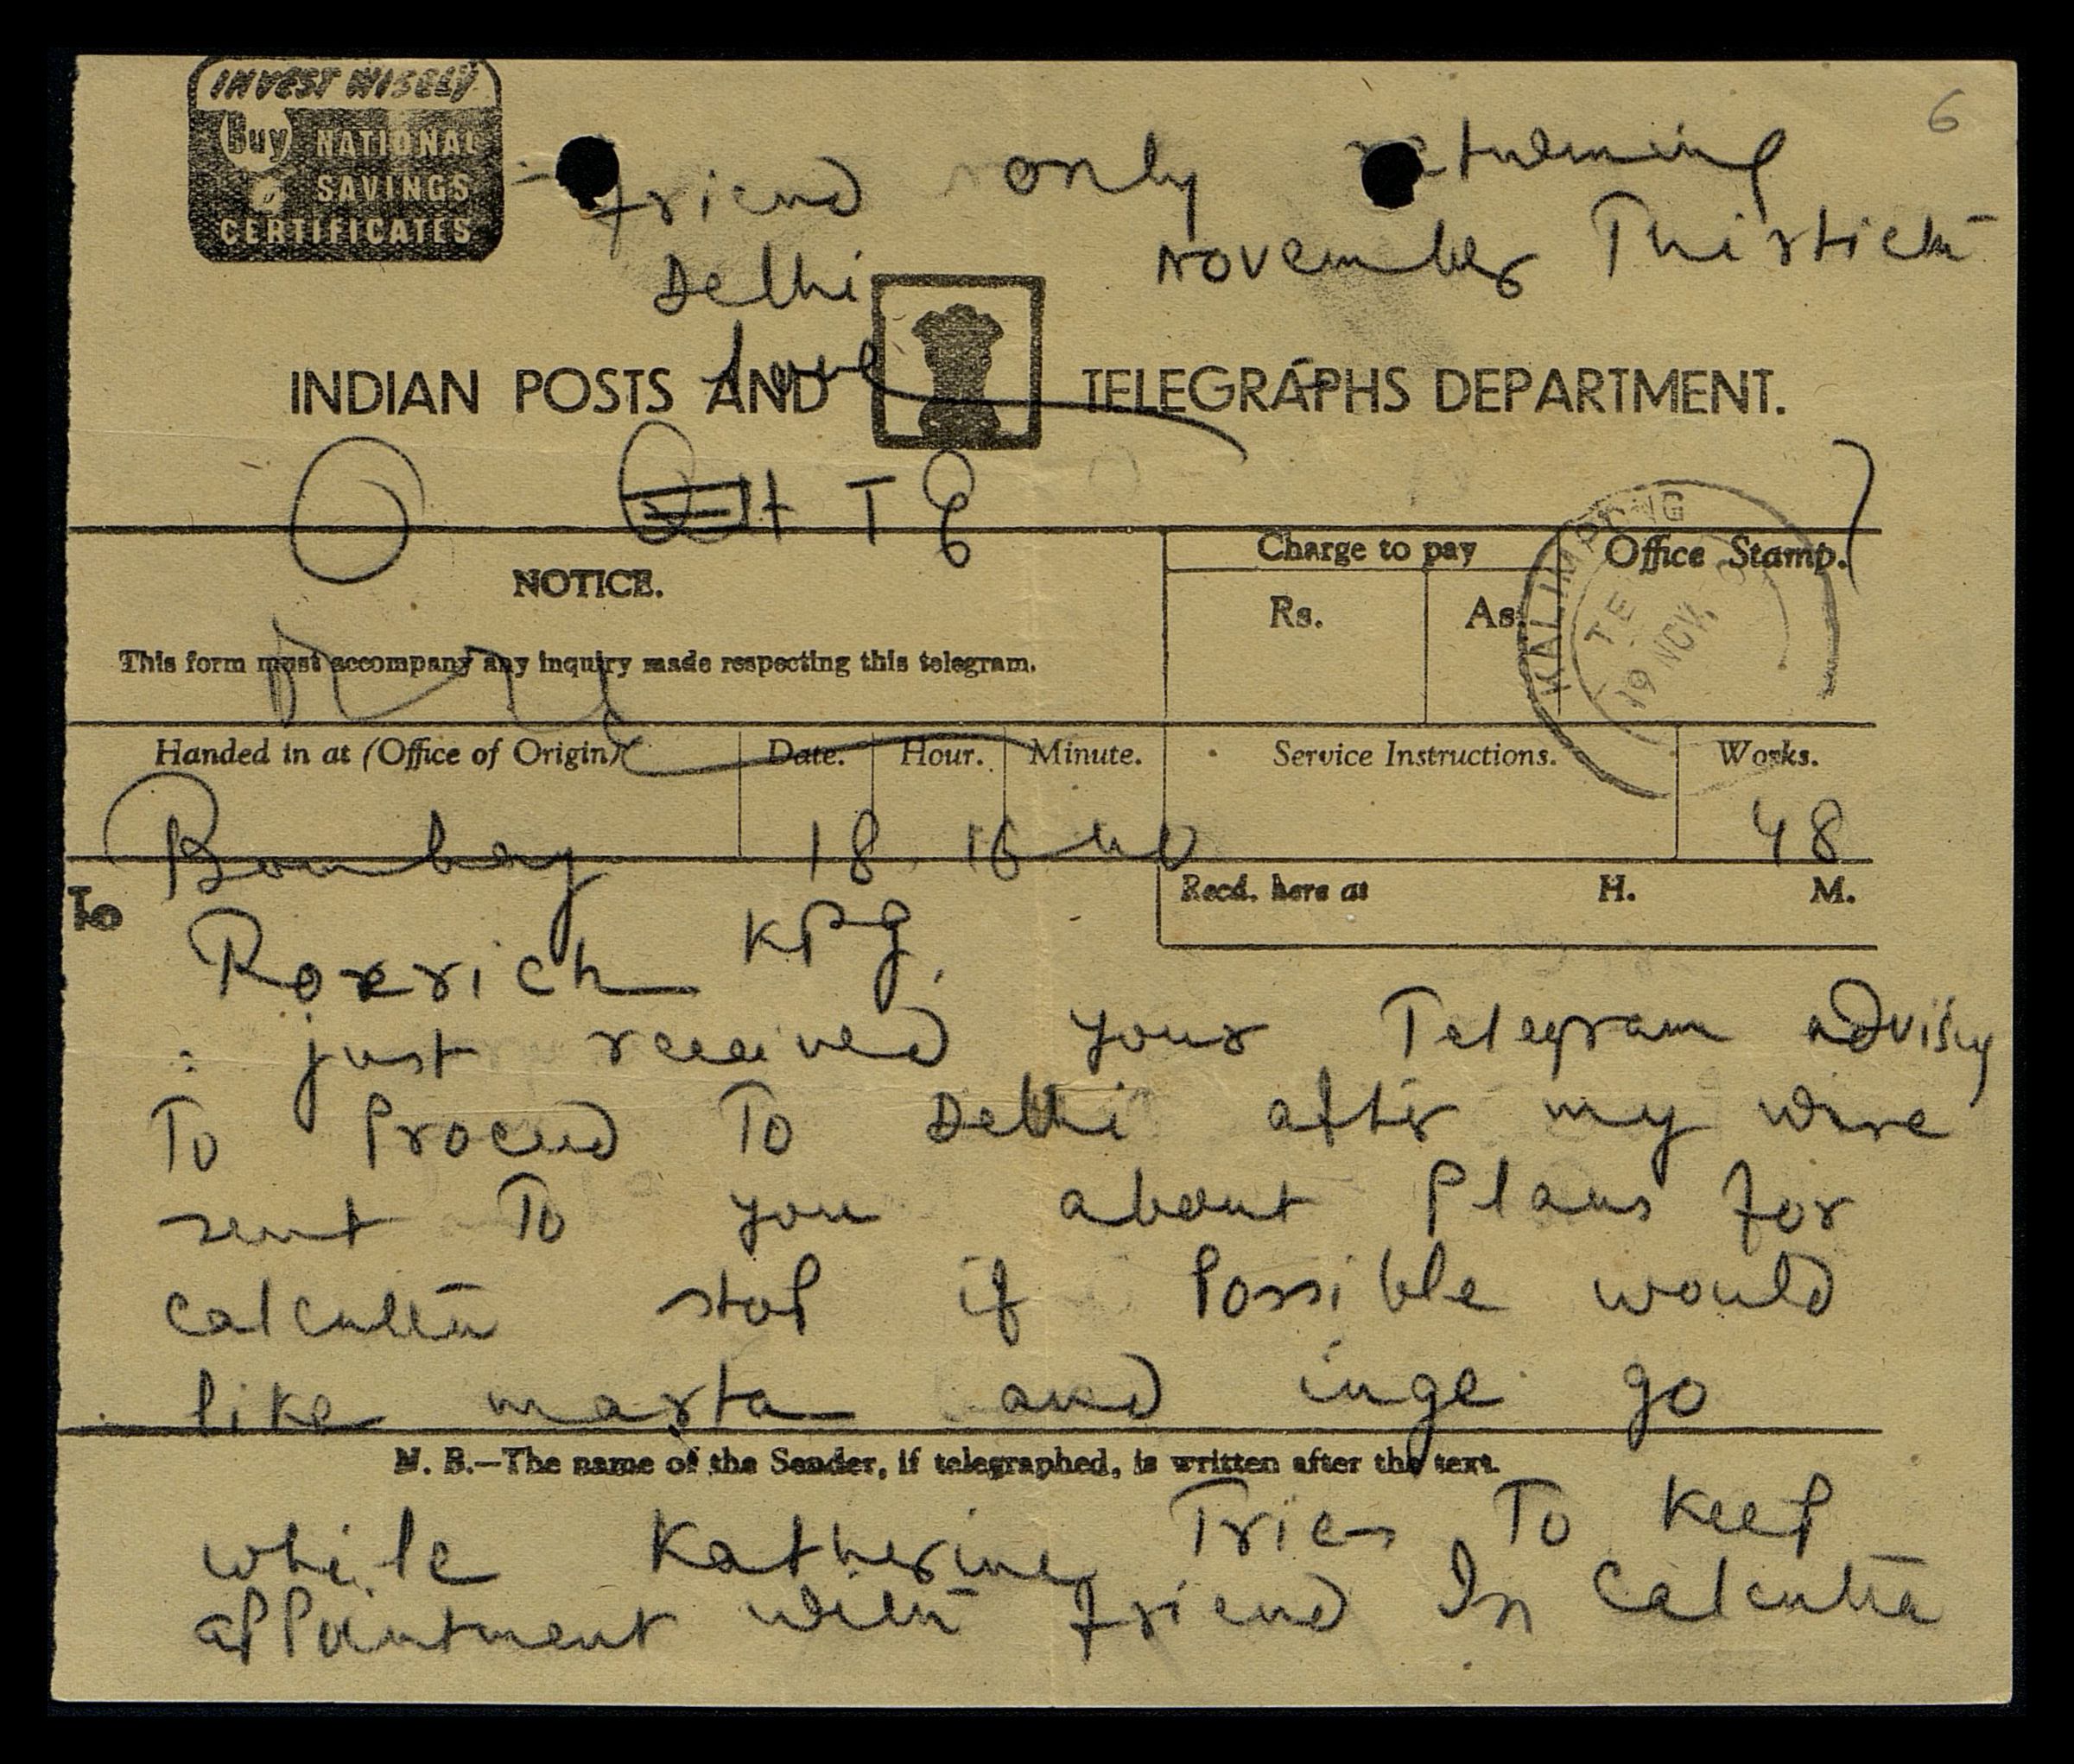 INVEST WISELY
Buy NATIONAL
SAVINGS
CERTIFICATES
6
= friend only returning
Delhi november Thirtieth
love
INDIAN POSTS AND TELEGRAPHS DEPARTMENT.
NOTICE.
Charge to pay
Office Stamp.
Rs. As.
This form must accompany any inquiry made respecting this telegram.
KALIMPONG
19 NOV.
Handed in at (Office of Origin) Date. Hour. Minute. Service Instructions. Works.
Bombay 18 16 40 48
To
Recd. here at H. M.
Roerich KPG
: just received your Telegram advising
To Proceed To Delhi after my wire
sent To you about Plans for
calcutta stop if Possible would
like marta and inge go
N. B.—The name of the Sender, if telegraphed, is written after the text.
while Katherine Tries To Keep
appointment with friend In Calcutta